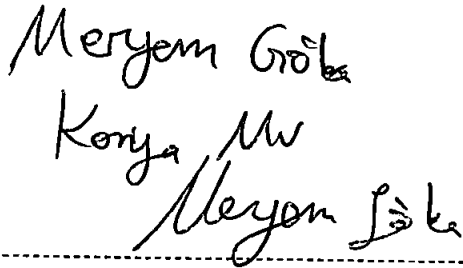 Meryem Göka
Konya Mv
Meryem Göka